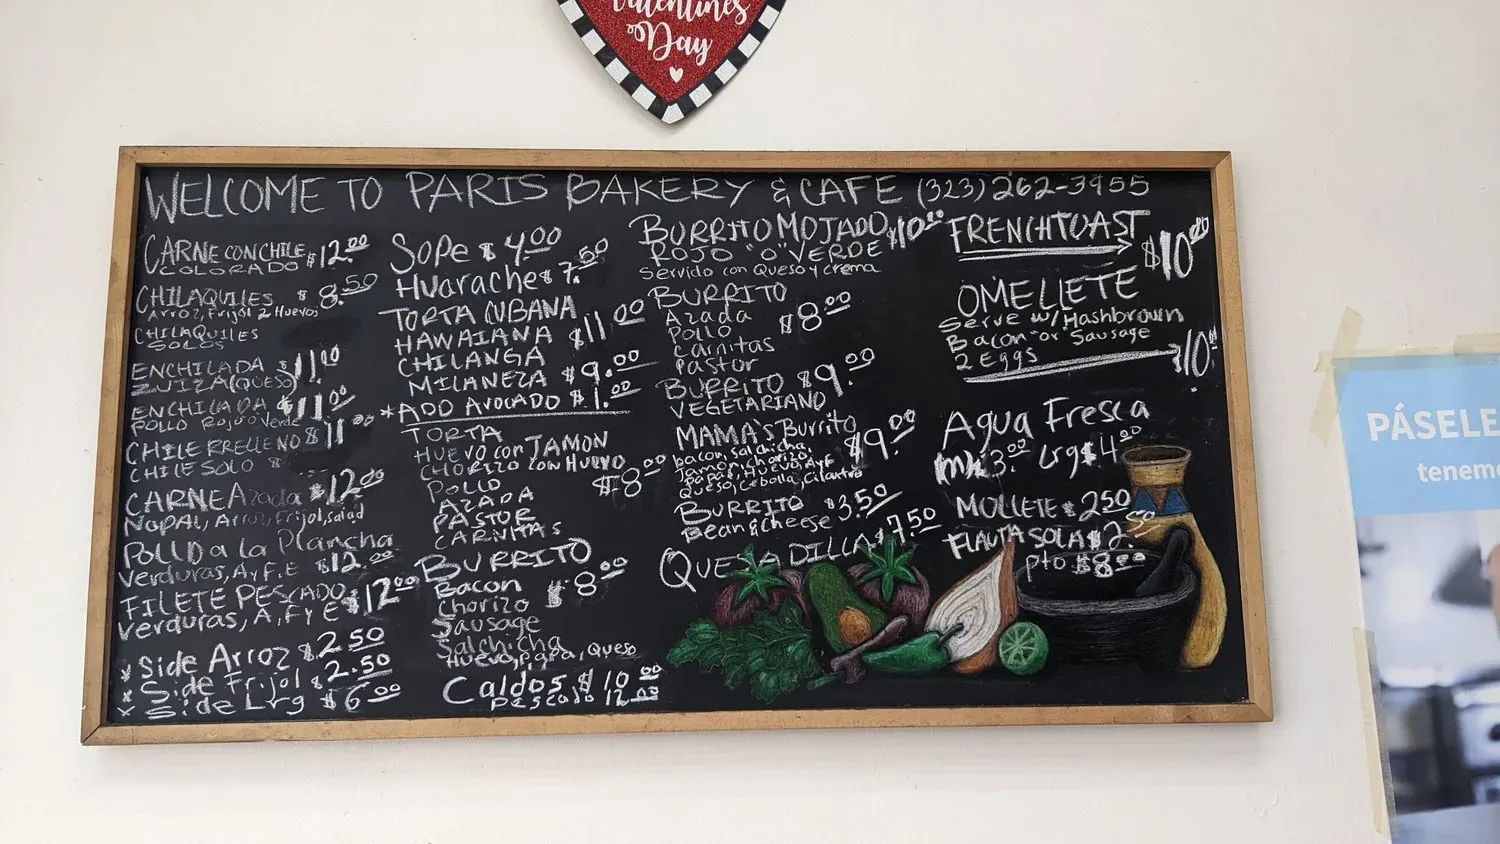 Valentines
Day
WELCOME TO PARIS BAKERY & CAFE (323) 262-3955
CARNE CON CHILE $12.00
COLORADO
CHILAQUILES $8.50
Arroz, Frijol 2 Huevos
CHILAQUILES
SOLOS
ENCHILADA $11.00
SUIZA (QUESO)
ENCHILADA $11.00
POLLO Rojo o Verde
CHILE RRELLENO $11.00
CHILE SOLO $
CARNE Azada $12.00
Nopal, Arroz, Frijol, salad
POLLO a la Plancha
Verduras, A y F. E $12.00
FILETE PESCADO $12.00
Verduras, A, F y E
* Side Arroz $2.50
* Side Frijol $2.50
* Side Lrg $6.00
Sope $4.00
Huarache $7.50
TORTA CUBANA
HAWAIANA $11.00
CHILANGA
MILANEZA $9.00
*ADD AVOCADO $1.00
TORTA
HUEVO con JAMON
CHORIZO CON HUEVO
POLLO $8.00
AZADA
PASTOR
CARNITAS
BURRITO
Bacon $8.00
Chorizo
Sausage
Salchicha
Huevo, papa, Queso
Caldos $10.00
pescado 12.00
BURRITO MOJADO $10.00
ROJO "O" VERDE
Servido con Queso y crema
BURRITO
Azada $8.00
Pollo
carnitas
Pastor
BURRITO $9.00
VEGETARIANO
MAMA'S Burrito $9.00
bacon, salchicha,
Jamon, chorizo,
papas, HUEVO, AyF
Queso, Cebolla, Cilantro
BURRITO $3.50
Bean & cheese
QUESADILLA $7.50
FRENCH TOAST $10.00
OMELETE
Serve w/ Hashbrown
Bacon "or" Sausage
2 EGGS $10.
Agua Fresca
3.00 Lrg $4.00
MOLLETE $2.50
FLAUTA SOLA $2.50
pto $8.00
PÁSELE
teneme